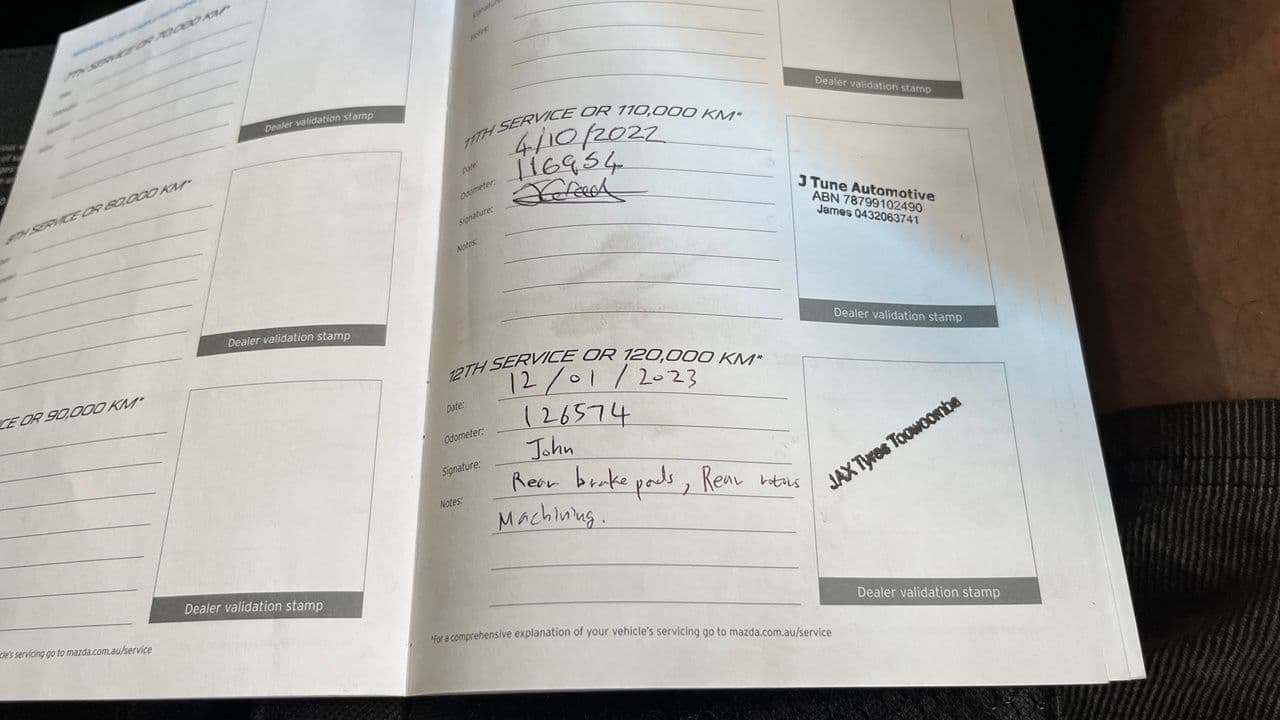 7TH SERVICE OR 70,000 KM*
Dealer validation stamp
8TH SERVICE OR 80,000 KM*
Dealer validation stamp
CE OR 90,000 KM*
Dealer validation stamp
cle's servicing go to mazda.com.au/service
Signature:
Notes:
Dealer validation stamp
11TH SERVICE OR 110,000 KM*
Date: 4/10/2022
Odometer: 116954
Signature:
Notes:
J Tune Automotive
ABN 78799102490
James 0432063741
Dealer validation stamp
12TH SERVICE OR 120,000 KM*
Date: 12/01/2023
Odometer: 126574
Signature: John
Notes: Rear brake pads, Rear rotors
Machining.
JAX Tyres Toowoomba
Dealer validation stamp
*For a comprehensive explanation of your vehicle's servicing go to mazda.com.au/service